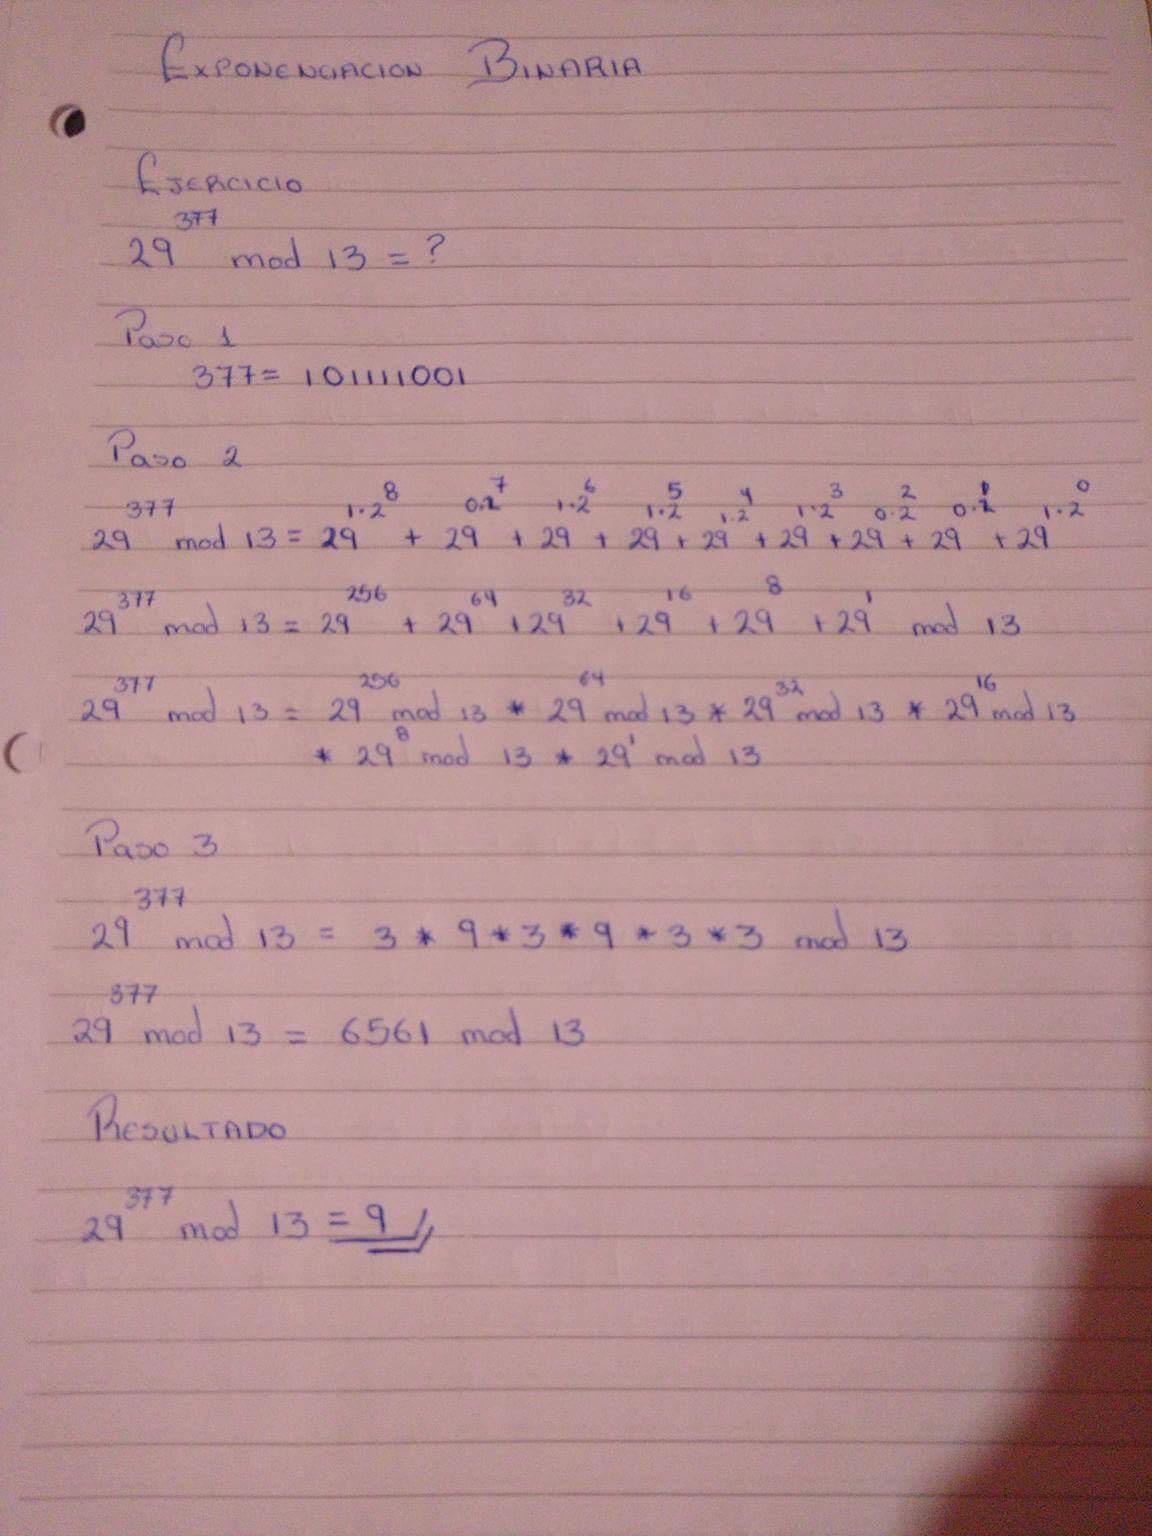 EXPONENCIACION BINARIA
EJERCICIO
29^377 mod 13 = ?
Paso 1
377 = 101111001
Paso 2
29^377 mod 13 = 29^1·2^8 + 29^0·2^7 + 29^1·2^6 + 29^1·2^5 + 29^1·2^4 + 29^1·2^3 + 29^0·2^2 + 29^0·2^1 + 29^1·2^0
29^377 mod 13 = 29^256 + 29^64 + 29^32 + 29^16 + 29^8 + 29^1 mod 13
29^377 mod 13 = 29^256 mod 13 * 29^64 mod 13 * 29^32 mod 13 * 29^16 mod 13
* 29^8 mod 13 * 29^1 mod 13
Paso 3
29^377 mod 13 = 3 * 9 * 3 * 9 * 3 * 3 mod 13
29^377 mod 13 = 6561 mod 13
RESULTADO
29^377 mod 13 = 9